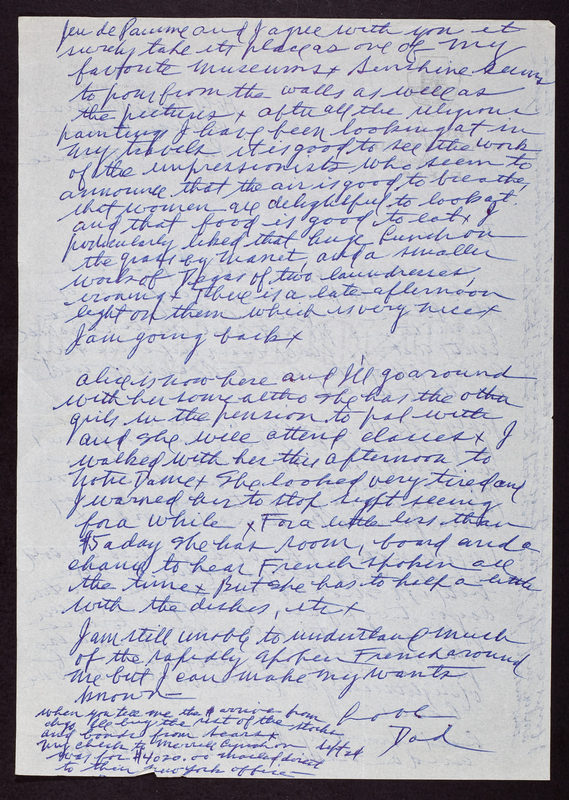 Jeu de Paume and I agree with you it
surely take its place as one of my
favorite museums x Sunshine seems
to pour from the walls as well as
the pictures x after all the religious
paintings I have been looking at in
my travels it is good to see the work
of the impressionists who seem to
announce that the air is good to breathe,
that women are delightful to look at
and that food is good to eat x I
particularly liked that huge Lunch on
the grass by Manet, and a smaller
work of Degas of two laundresses,
ironing x There is a late afternoon
light on them which is very nice x
I am going back x
Alice is now here and I'll go around
with her some altho she has the other
girls in the pension to pal with
and she will attend classes x I
walked with her this afternoon to
Notre Dame x She looked very tired and
I warned her to stop sight seeing
for a while x For a little less than
$5 a day she has room, board and a
chance to hear French spoken all
the time x But she has to help a little
with the dishes, etc x
I am still unable to understand much
of the rapidly spoken French around
me but I can make my wants
known -
Love
Dad
when you tell me the $ arrive from
I'll buy the rest of the stocks
and bonds from Sears x
My check to Merrill Lynch
was for $4020.00 mailed direct
to their New York office -